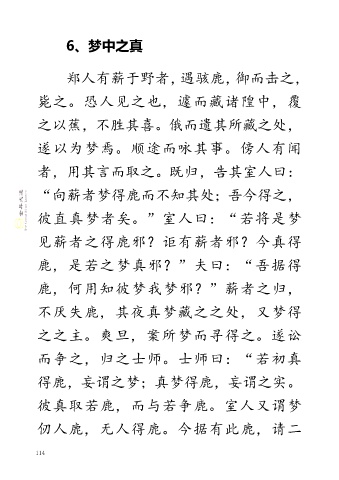 6、梦中之真
郑人有薪于野者，遇骇鹿，御而击之，
毙之。恐人见之也，遽而藏诸隍中，覆
之以蕉，不胜其喜。俄而遗其所藏之处，
遂以为梦焉。顺途而咏其事。傍人有闻
者，用其言而取之。既归，告其室人曰：
“向薪者梦得鹿而不知其处；吾今得之，
彼直真梦者矣。”室人曰：“若将是梦
见薪者之得鹿邪？讵有薪者邪？今真得
鹿，是若之梦真邪？”夫曰：“吾据得
鹿，何用知彼梦我梦邪？”薪者之归，
不厌失鹿，其夜真梦藏之之处，又梦得
之之主。爽旦，案所梦而寻得之。遂讼
而争之，归之士师。士师曰：“若初真
得鹿，妄谓之梦；真梦得鹿，妄谓之实。
彼真取若鹿，而与若争鹿。室人又谓梦
仞人鹿，无人得鹿。今据有此鹿，请二
114